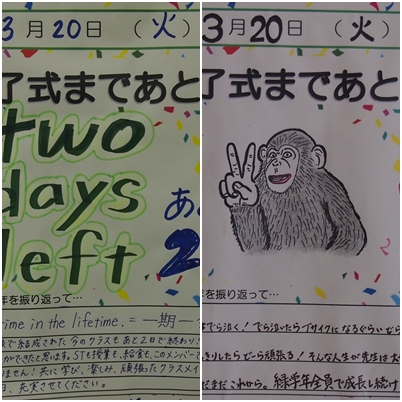 3月20日 (火)
了式まであと
two
days
left
あ
2
年を振り返って…
time in the lifetime. = 一期一
で結成された今のクラスもあと2日で終わり
ができたと思います。STも授業も給食も、このメンバーで
ません! 共に学び、楽しみ、頑張ったクラスメイ
日、充実させてください。
3月20日 (火)
了式まであと
2
年を振り返って…
でら泣く! でら泣いたらブサイクになるぐらいでら
きりしたらどーら頑張る! そんな人生が先生は大
だまだこれから。緑学年全員で成長し続け